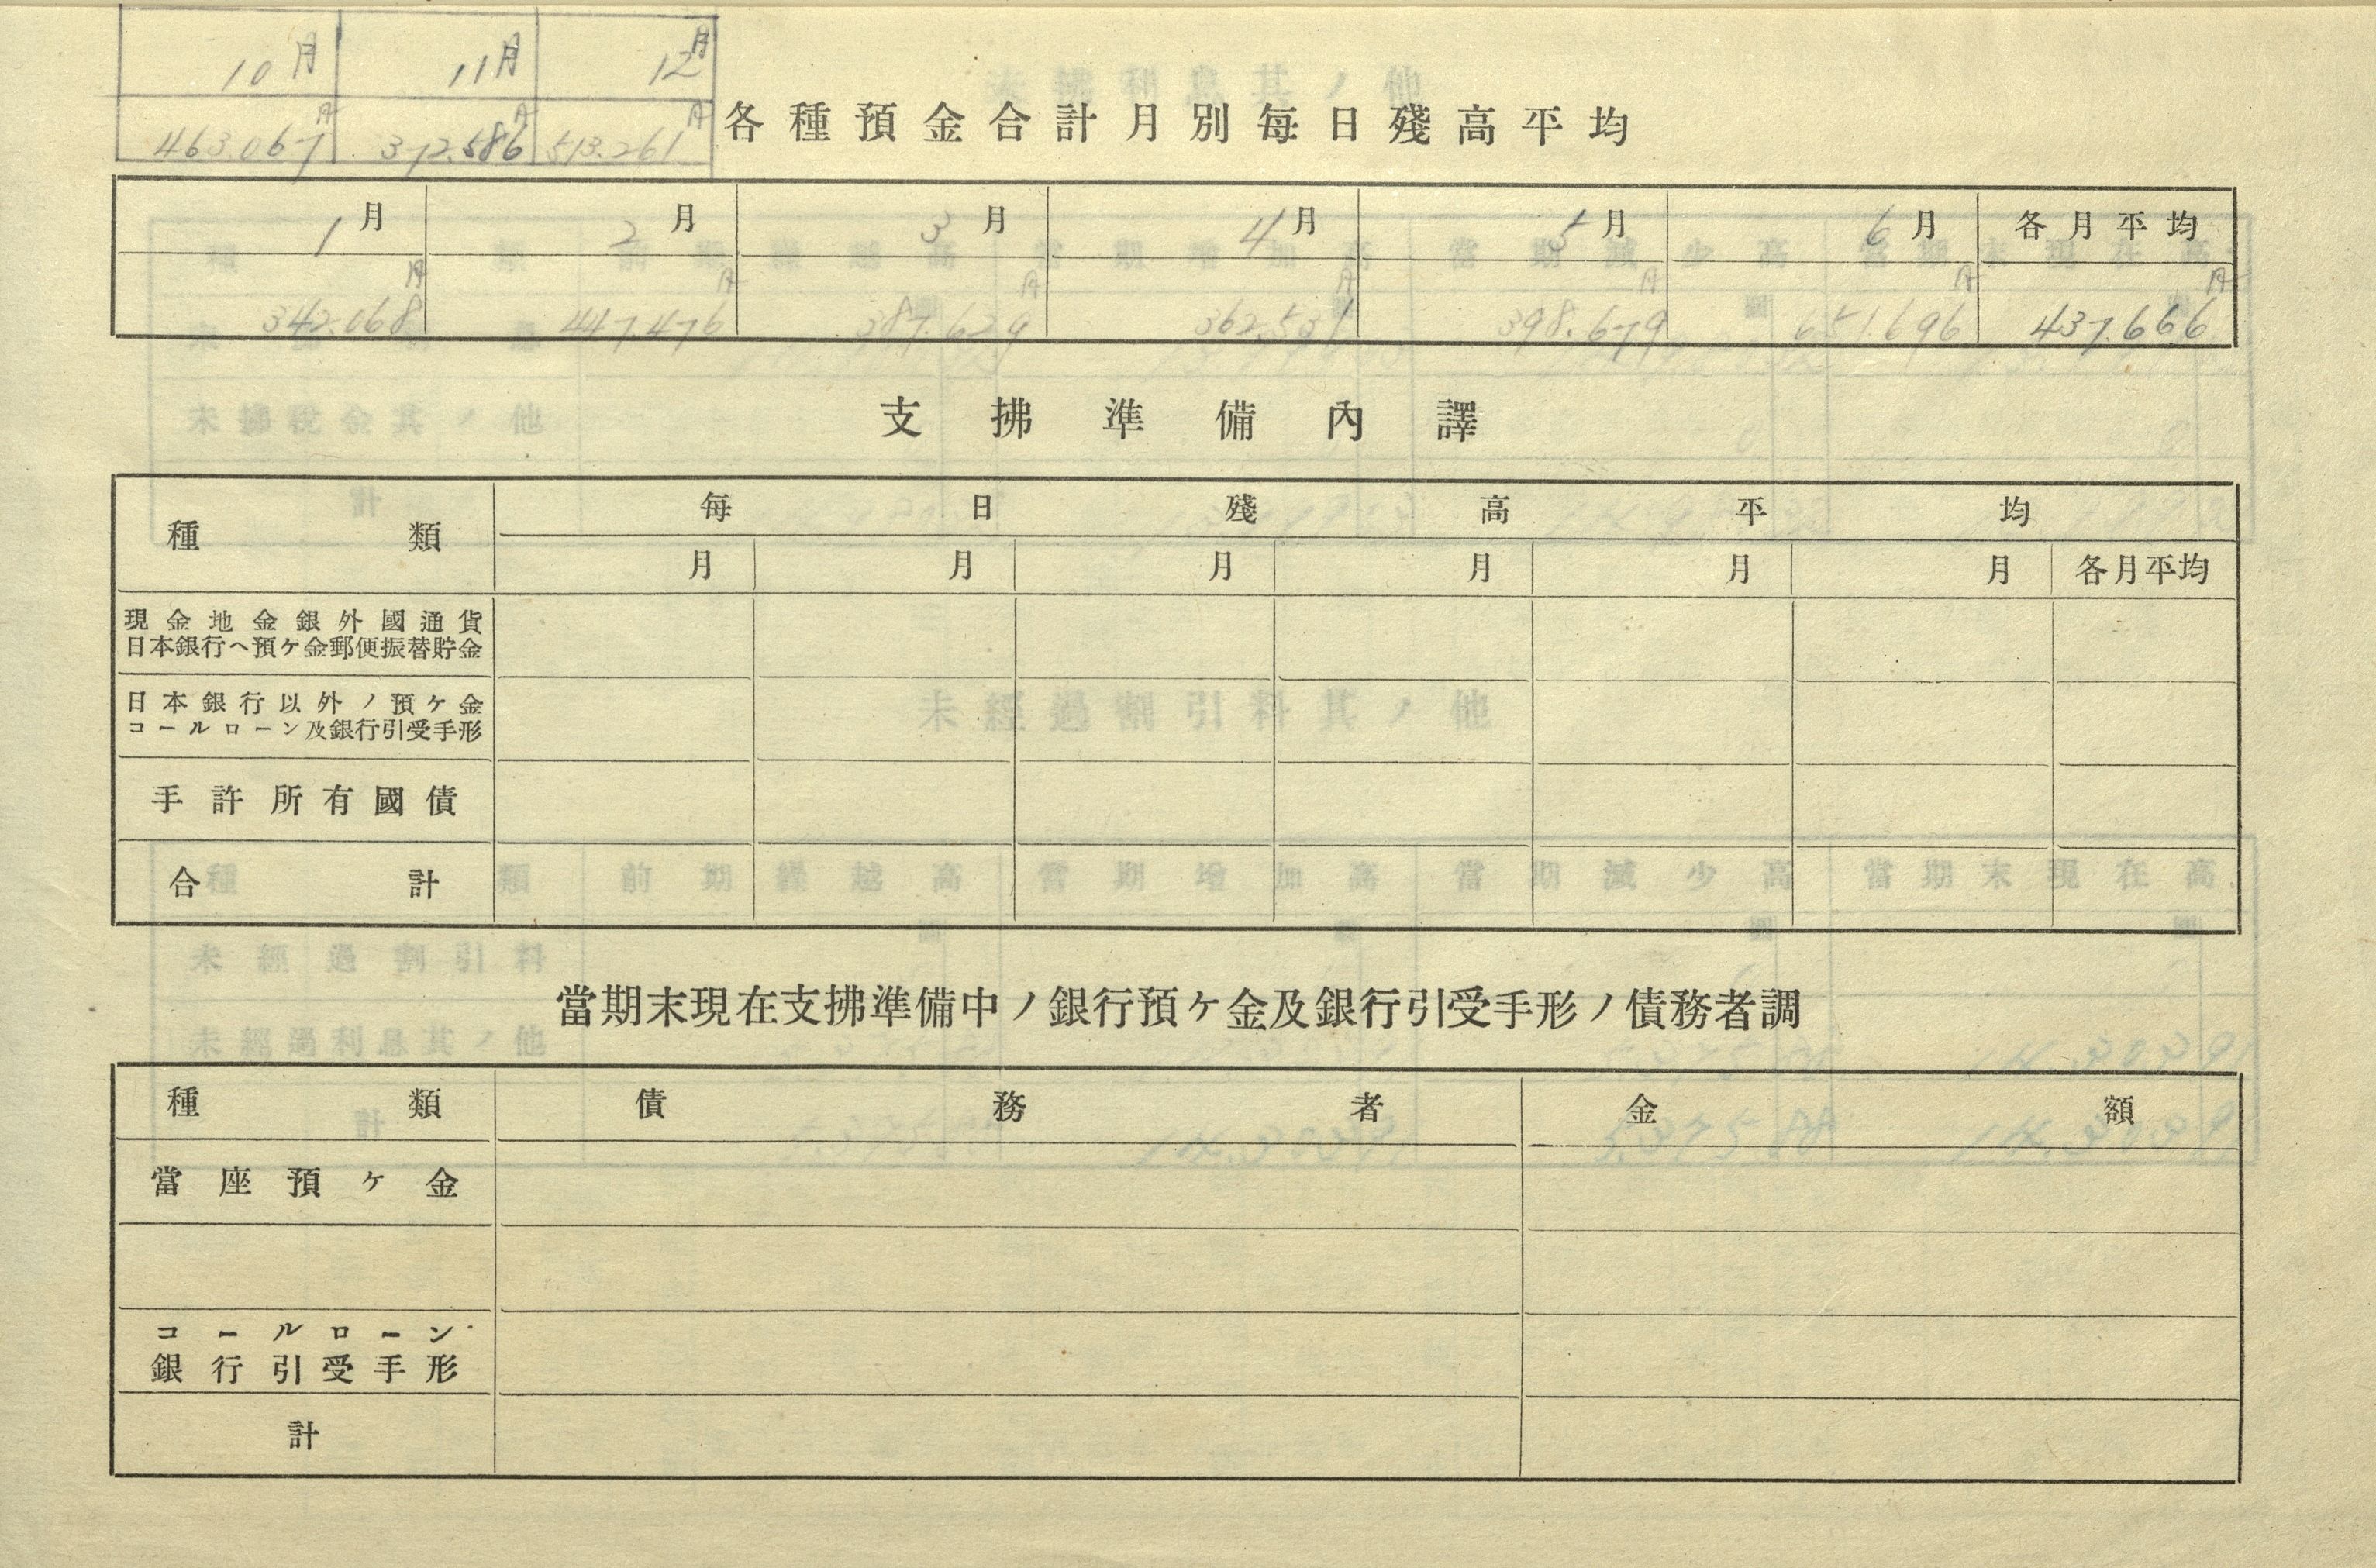 10月 11月 12月
円 円 円
463.067 372.586 513.261
各種預金合計月別每日殘高平均
1月 2月 3月 4月 5月 6月 各月平均
円 円 円 円 円 円 円
342.068 447.476 387.629 362.531 398.679 651.696 437.666
支拂準備內譯
種類 每日殘高平均
月 月 月 月 月 月 各月平均
現金地金銀外國通貨
日本銀行ヘ預ケ金郵便振替貯金
日本銀行以外ノ預ケ金
コールローン及銀行引受手形
手許所有國債
合計
當期末現在支拂準備中ノ銀行預ケ金及銀行引受手形ノ債務者調
種類 債務者 金額
當座預ケ金
コールローン
銀行引受手形
計